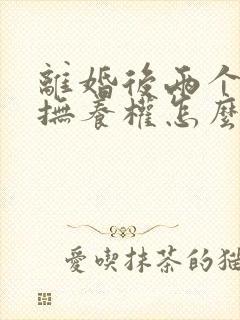 離婚後兩个
撫養權怎麼
愛喫抹茶的猫